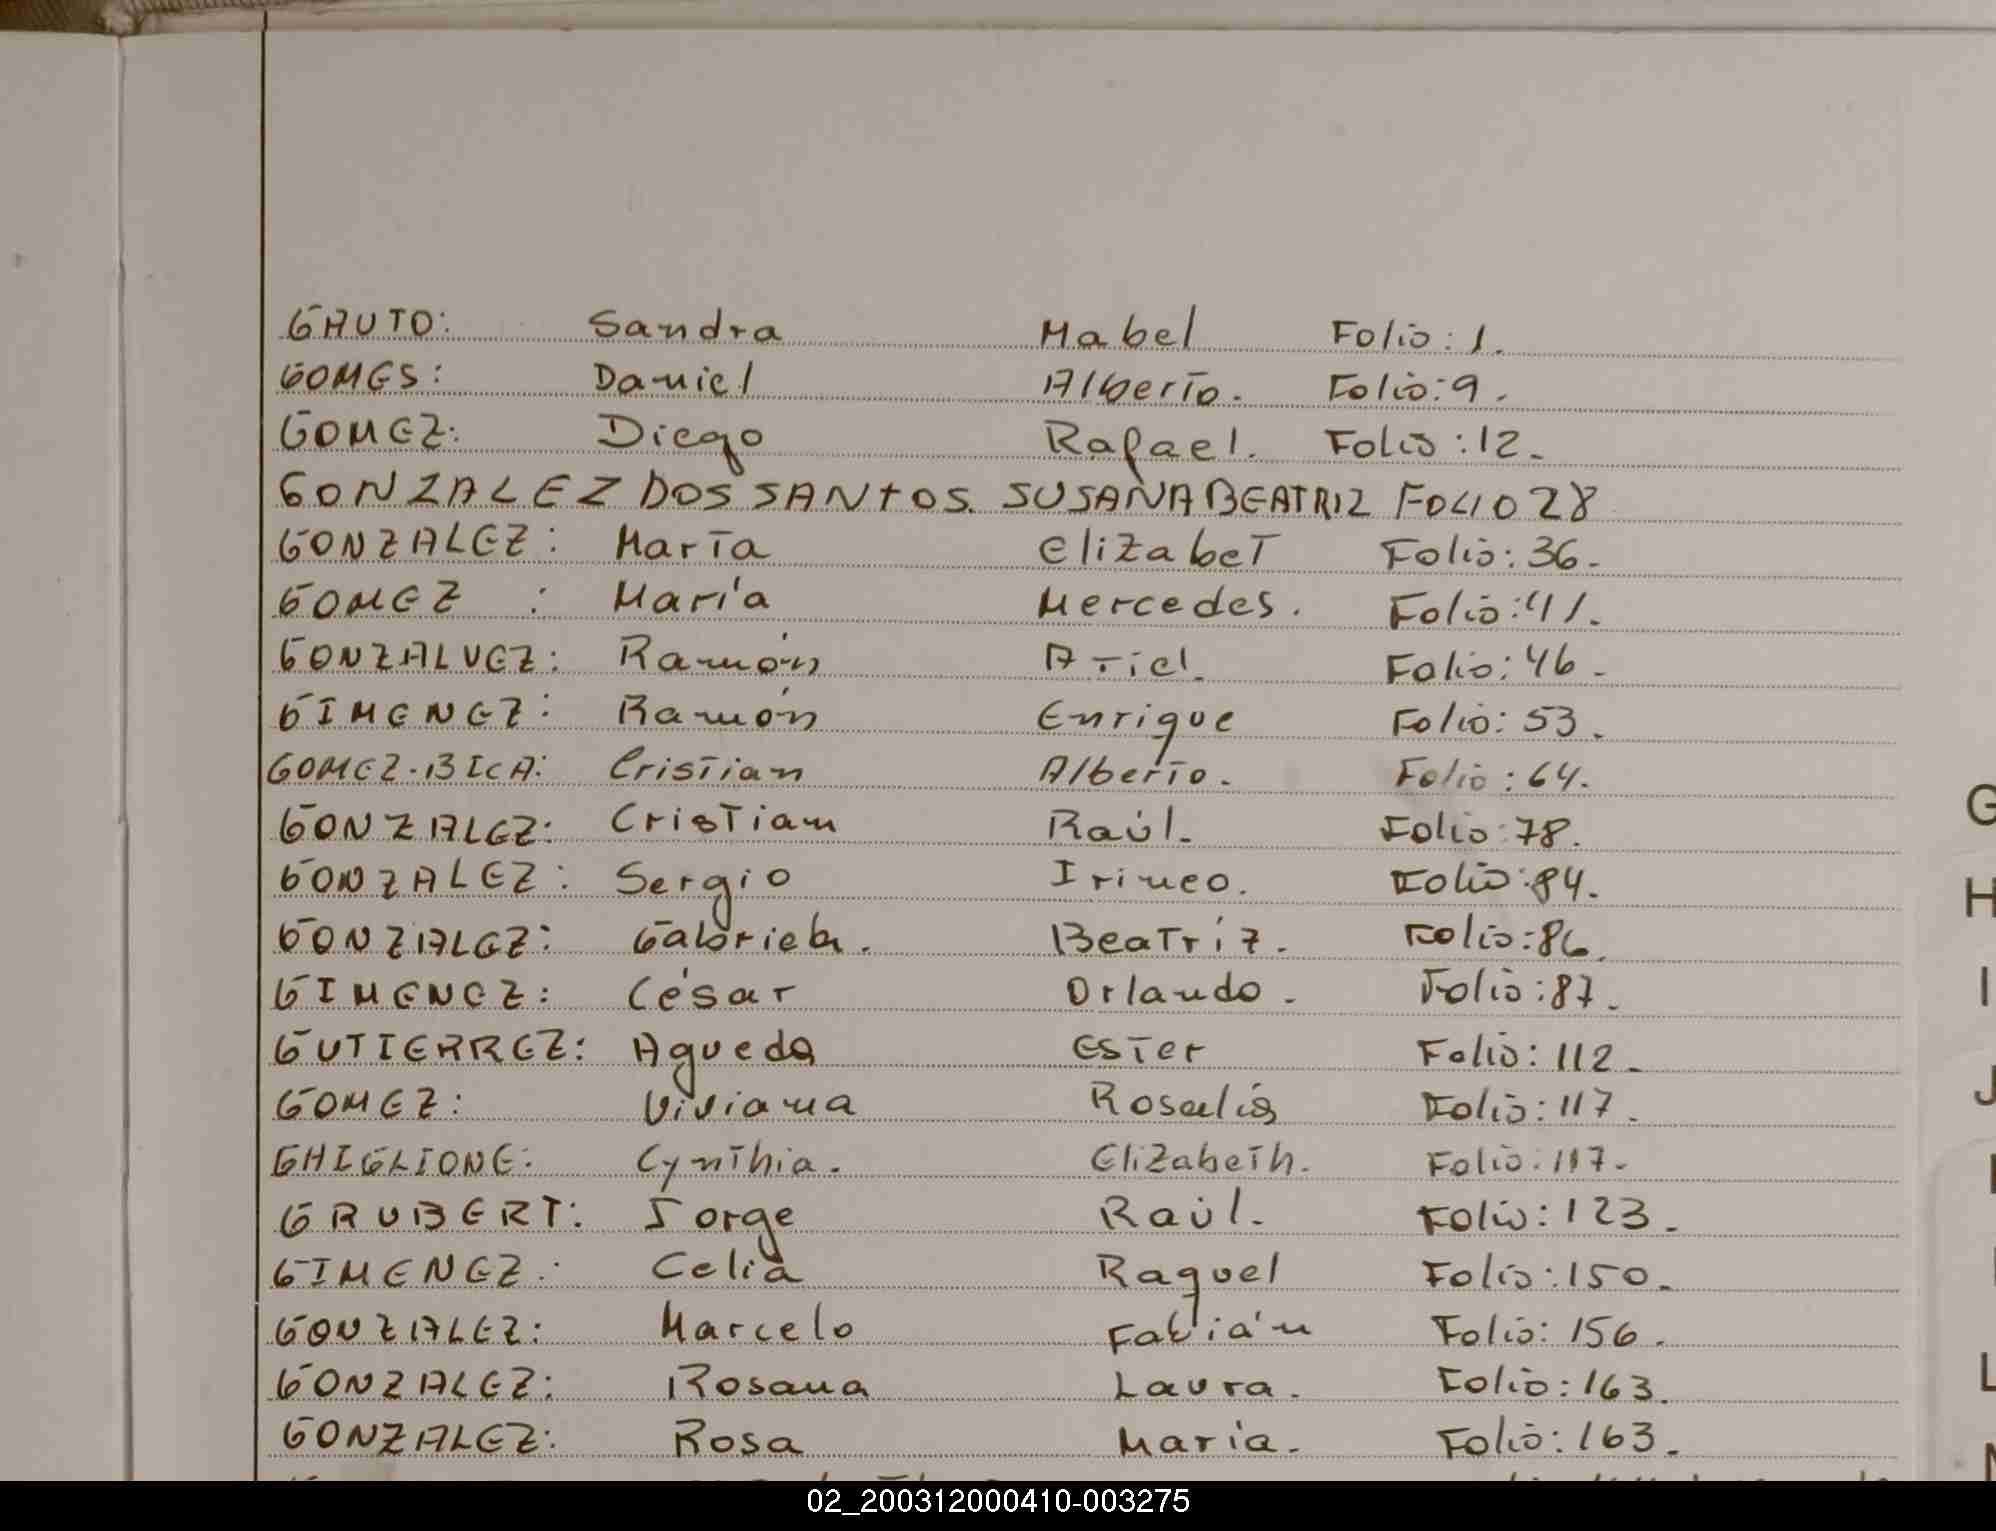 GAUTO: Sandra Mabel Folio: 1.
GOMES: Daniel Alberto. Folio: 9.
GOMEZ: Diego Rafael. Folio: 12.
GONZALEZ DOS SANTOS. SUSANA BEATRIZ FOLIO 28
GONZALEZ: María Elizabet Folio: 36.
GOMEZ : María Mercedes. Folio: 41.
GONZALVEZ: Ramón Ariel. Folio: 46.
GIMENEZ: Ramón Enrique Folio: 53.
GOMEZ-BICA: Cristian Alberto. Folio: 64.
GONZALEZ: Cristian Raúl. Folio: 78.
GONZALEZ: Sergio Irineo. Folio: 84.
GONZALEZ: Gabriela. Beatríz. Folio: 86.
GIMENEZ: César Orlando. Folio: 87.
GUTIERREZ: Agueda Ester Folio: 112.
GOMEZ: Viviana Rosalia Folio: 117.
GHIGLIONE: Cynthia. Elizabeth. Folio: 117.
GRUBERT: Jorge Raúl. Folio: 123.
GIMENEZ: Celia Raquel Folio: 150.
GONZALEZ: Marcelo Fabián Folio: 156.
GONZALEZ: Rosana Laura. Folio: 163.
GONZALEZ: Rosa María. Folio: 163.
G
H
I
J
L
02_200312000410-003275